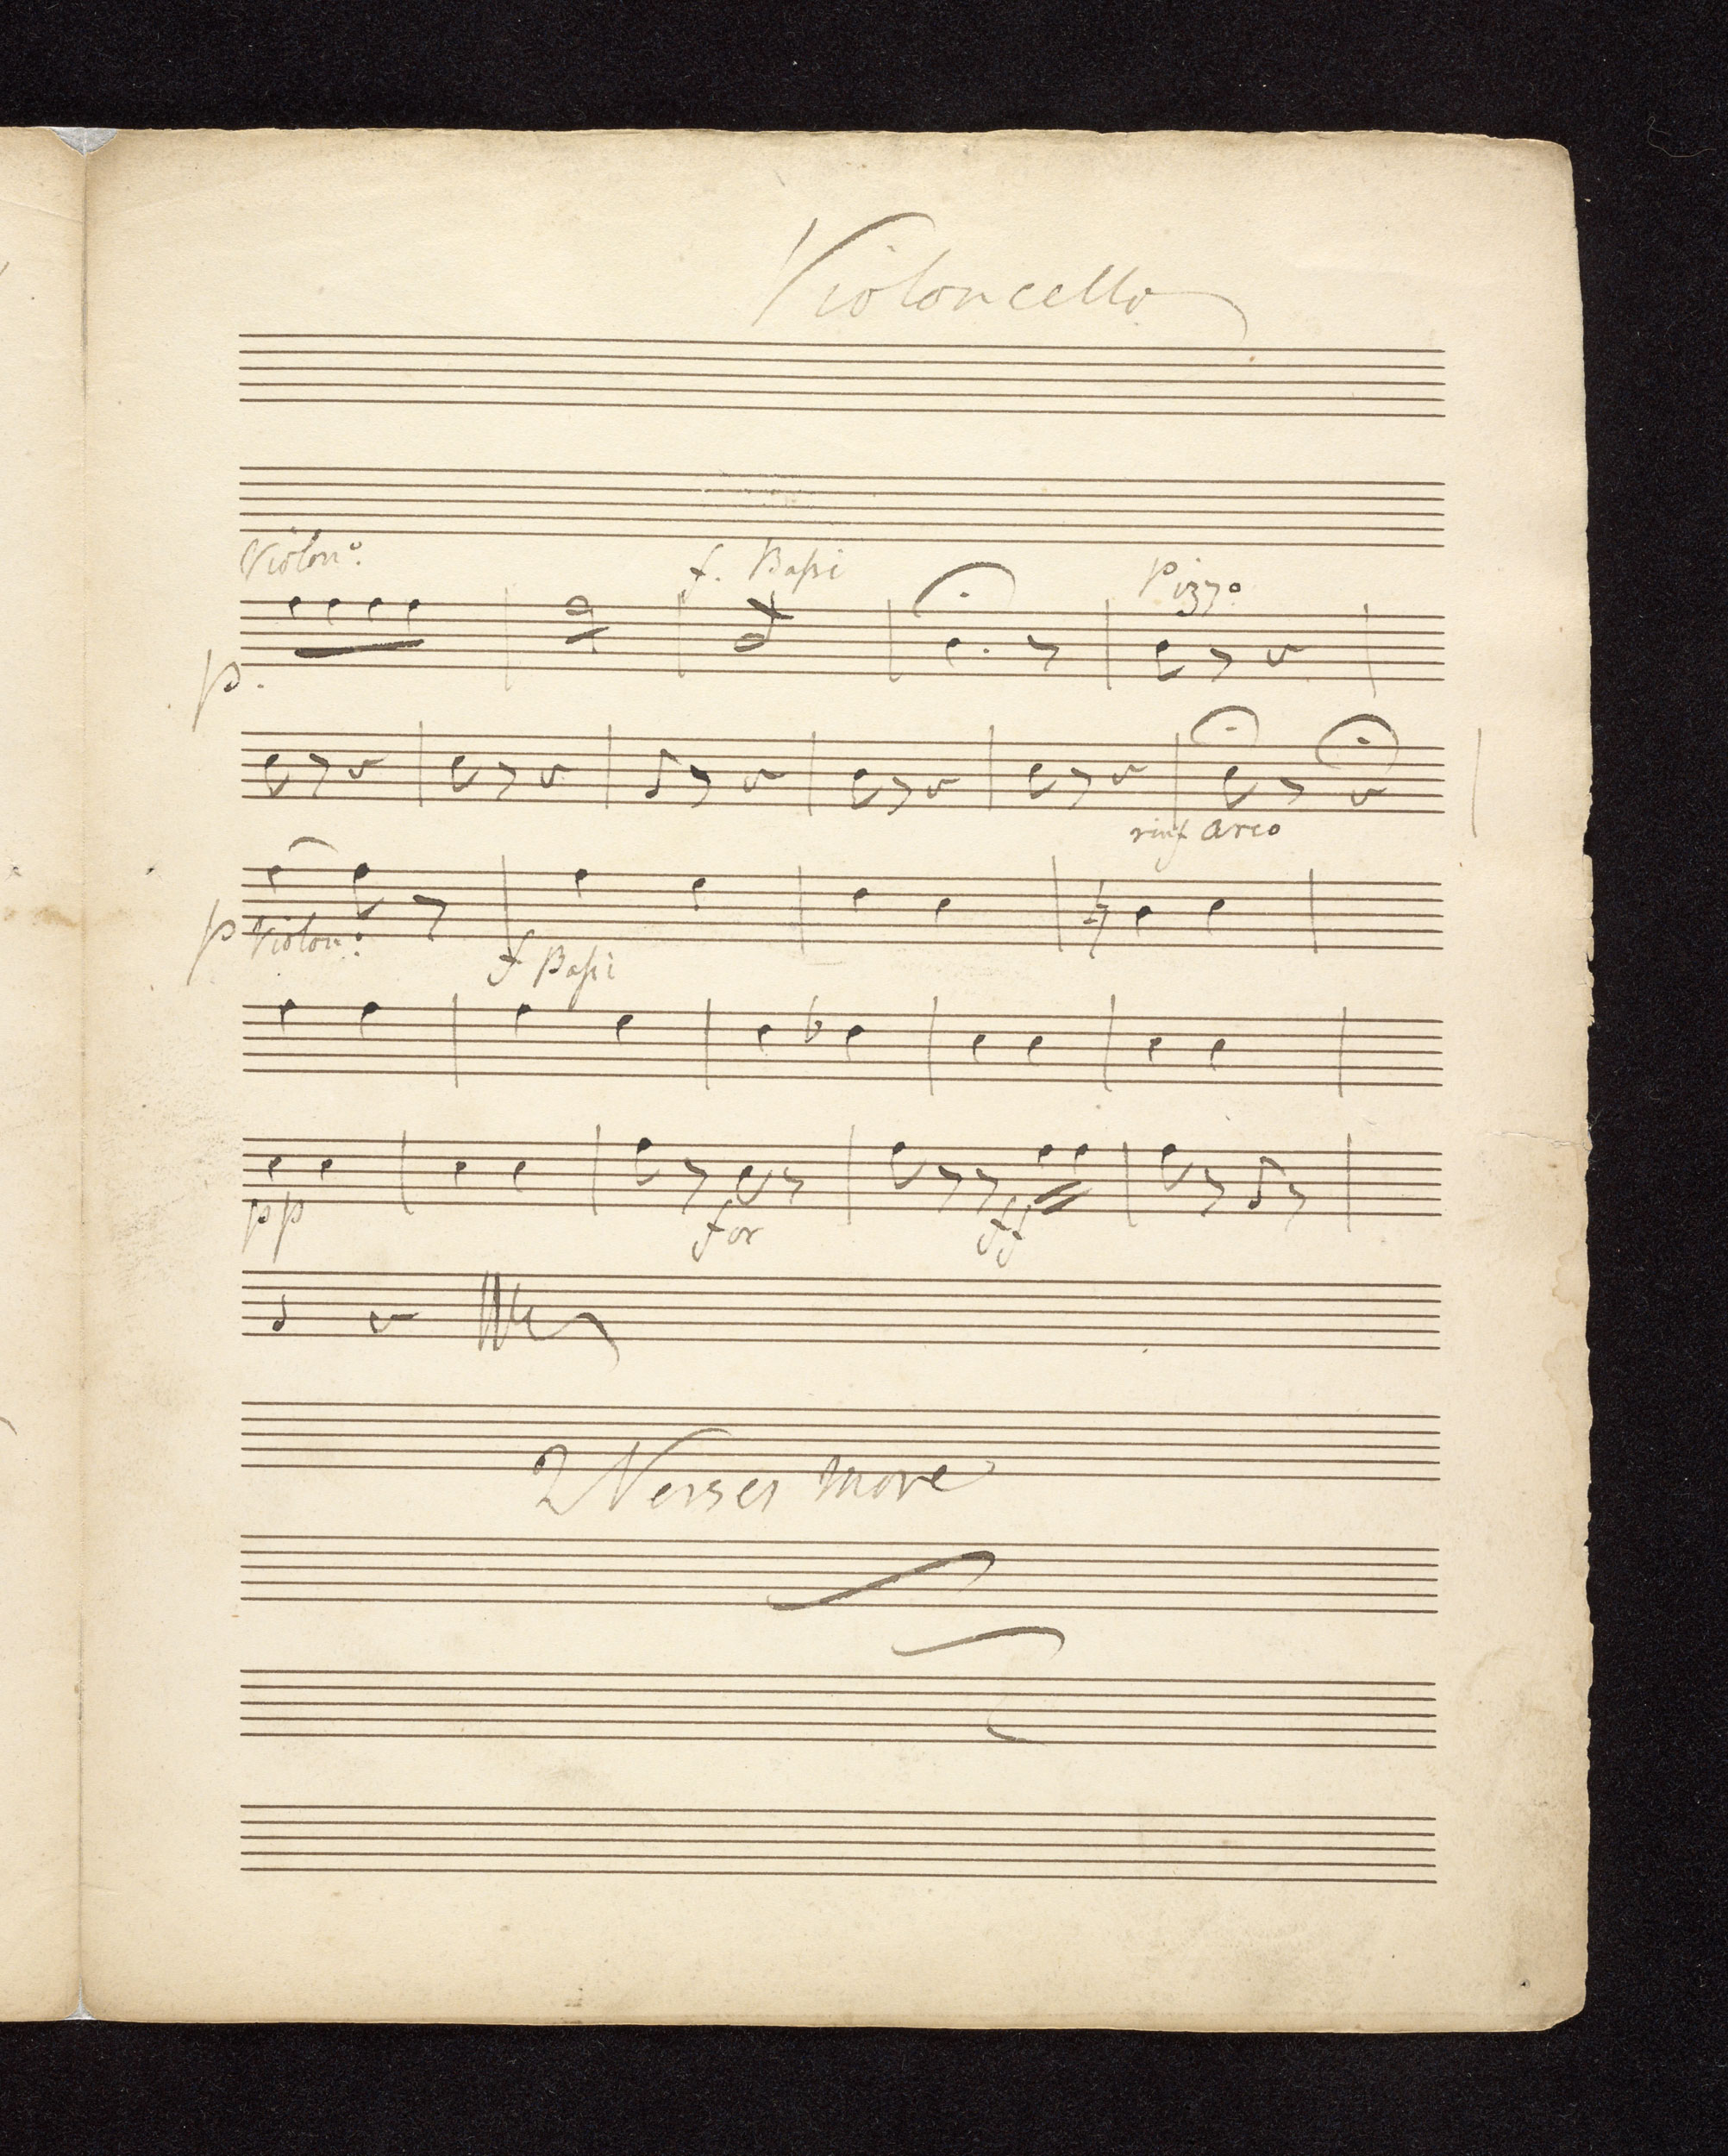 Violoncello
Violon.º f. Baſsi Pizzº
p.
rinf arco
p Violon.º f Baſsi
pp for ff
2 Verses more